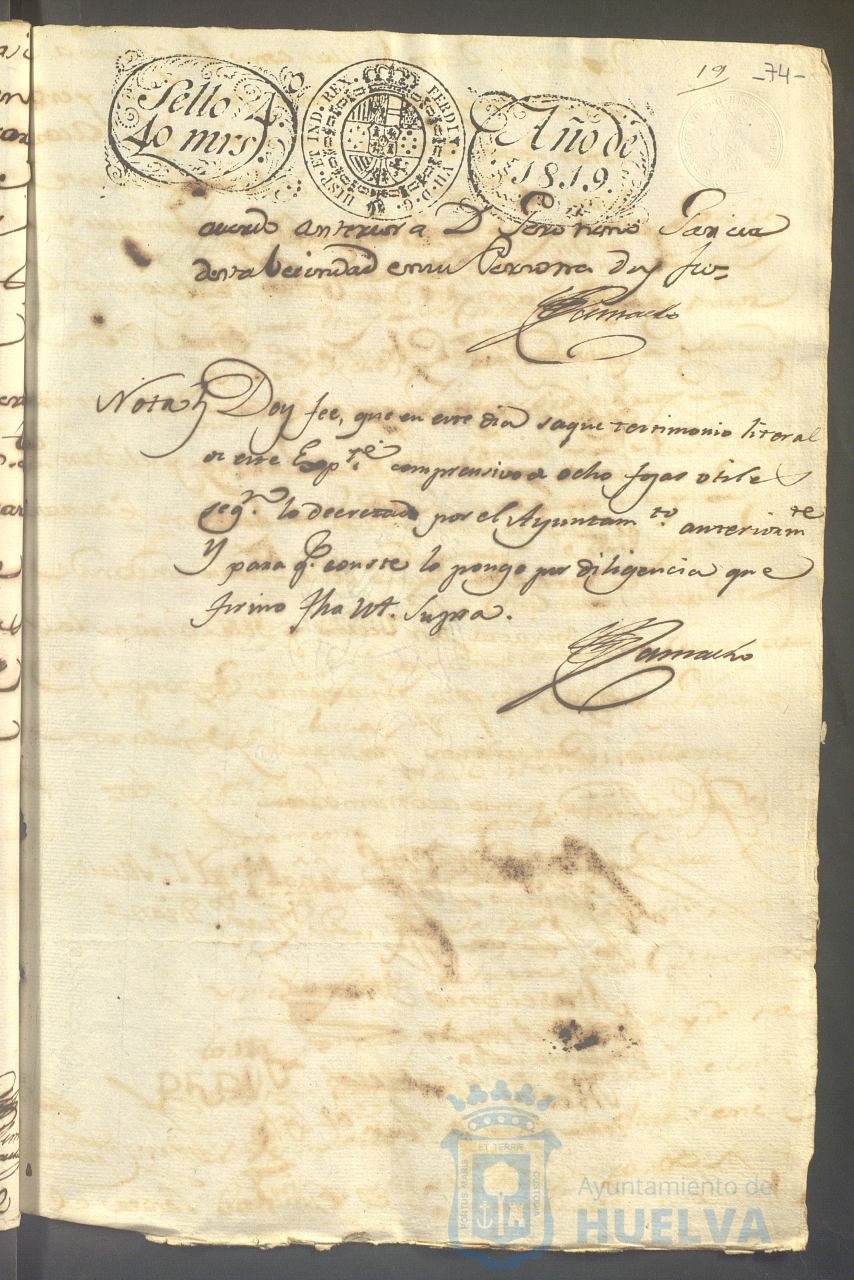 19 -74-
Sello 4.º
40 mrs.
HISP. ET IND. REX. FERDIN. VII. D. G.
Año de
1819.
acuerdo anterior a D.n Geronimo Garcia
de esta Vecindad en su Persona doy fee=
Camacho
Nota Doy fee, que en este dia saque testimonio literal
de este Exp.te comprensivo de ocho fojas utiles
seg.n lo decretado por el Ayuntam.to anteriorm.te
Y para q.e conste lo pongo por diligencia que
firmo fha Ut. Supra.
Camacho
PORTUS MARIS ET TERRAE CUSTODIA
Ayuntamiento de
HUELVA